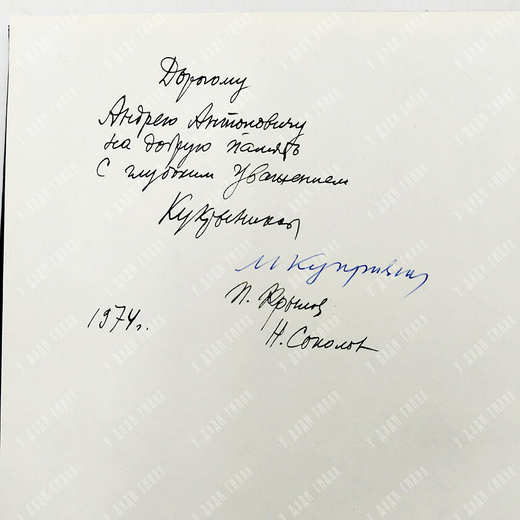 Дорогому
Андрею Антоновичу
на добрую память
С глубоким уважением
Кукрыниксы
М Куприянов
П. Крылов
1974г.
Н. Соколов